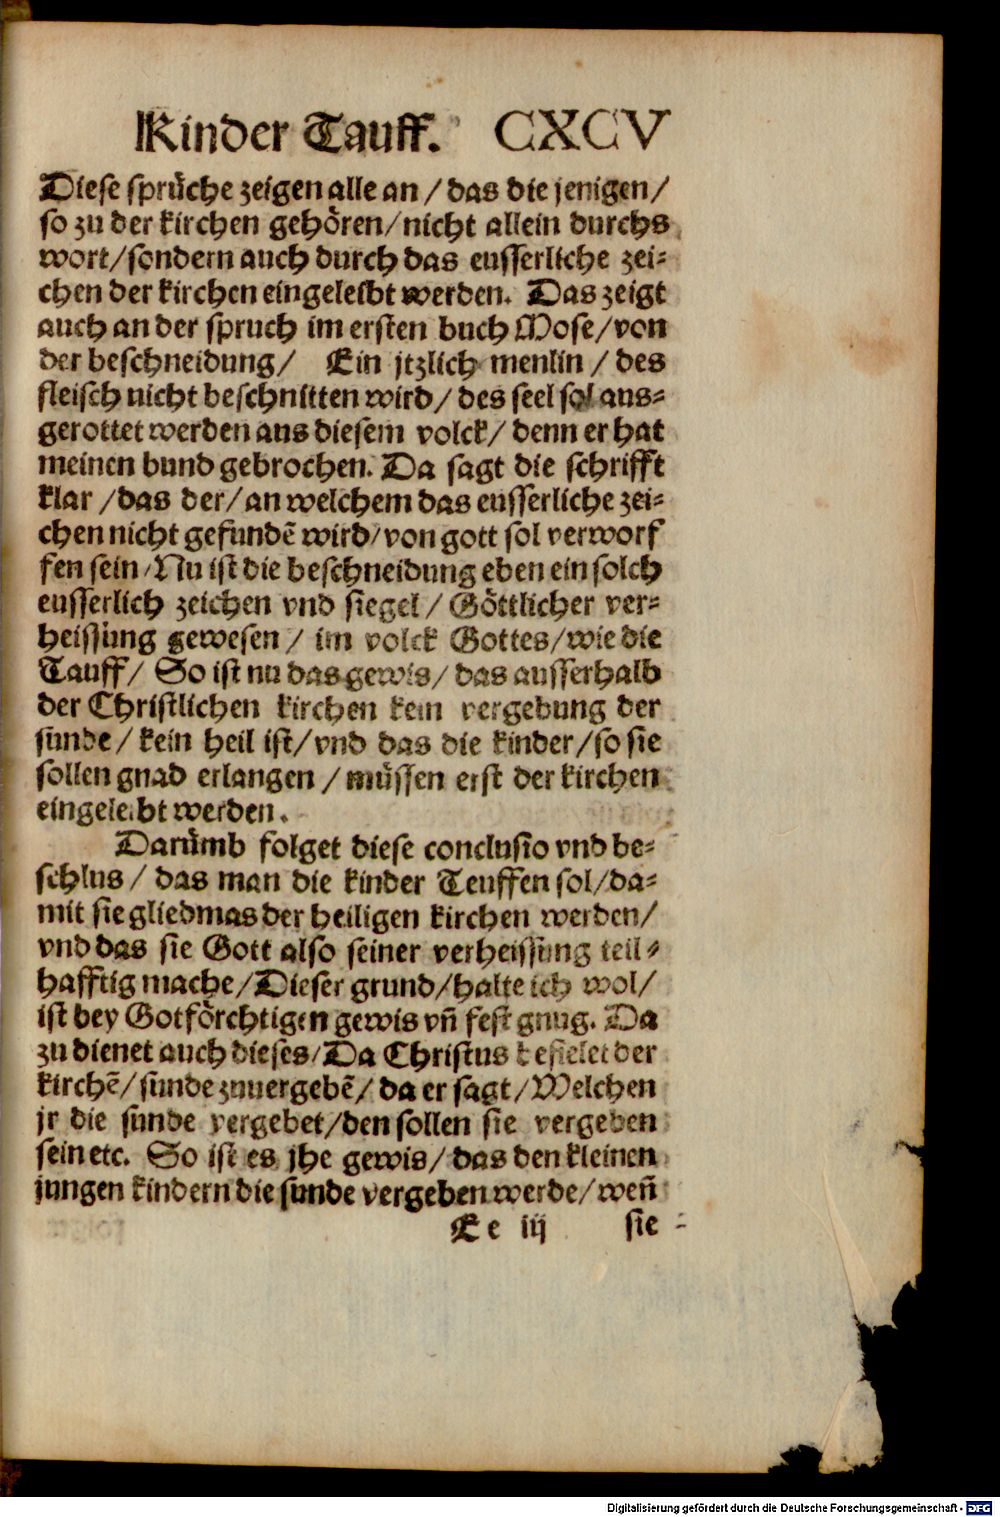 Kinder Tauff. CXCV
Diese sprüche zeigen alle an / das die jenigen /
so zu der kirchen gehören / nicht allein durchs
wort / sondern auch durch das eusserliche zei=
chen der kirchen eingeleibt werden. Das zeigt
auch an der spruch im ersten buch Mose / von
der beschneidung / Ein jtzlich menlin / des
fleisch nicht beschnitten wird / des seel sol aus=
gerottet werden aus diesem volck / denn er hat
meinen bund gebrochen. Da sagt die schrifft
klar / das der / an welchem das eusserliche zei=
chen nicht gefundē wird / von gott sol verworf
fen sein / Nu ist die beschneidung eben ein solch
eusserlich zeichen vnd siegel / Göttlicher ver=
heissung gewesen / im volck Gottes / wie die
Tauff / So ist nu das gewis / das ausserhalb
der Christlichen kirchen kein vergebung der
sunde / kein heil ist / vnd das die kinder / so sie
sollen gnad erlangen / müssen erst der kirchen
eingeleibt werden.
Darümb folget diese conclusio vnd be=
schlus / das man die kinder Teuffen sol / da=
mit sie gliedmas der heiligen kirchen werden /
vnd das sie Gott also seiner verheissung teil=
hafftig mache / Dieser grund / halte ich wol /
ist bey Gotförchtigen gewis vn̄ fest gnug. Da
zu dienet auch dieses / Da Christus befielet der
kirchē / sunde zuuergebē / da er sagt / Welchen
jr die sunde vergebet / den sollen sie vergeben
sein etc. So ist es jhe gewis / das den kleinen
jungen kindern die sunde vergeben werde / wen̄
Ee iij sie
Digitalisierung gefördert durch die Deutsche Forschungsgemeinschaft - DFG